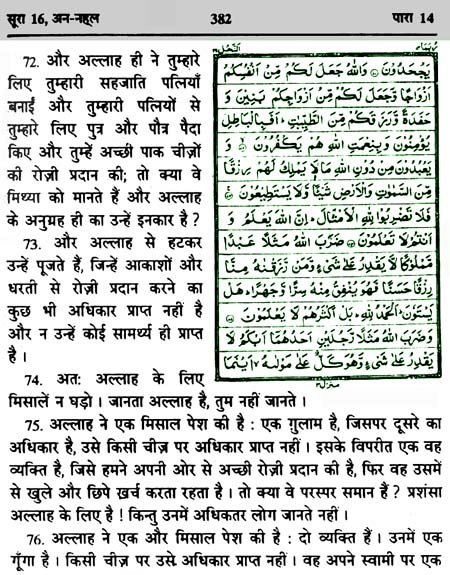 सूरा 16, अन-नह्ल 382 पारा 14
72. और अल्लाह ही ने तुम्हारे
लिए तुम्हारी सहजाति पत्नियाँ
बनाईं और तुम्हारी पत्नियों से
तुम्हारे लिए पुत्र और पौत्र पैदा
किए और तुम्हें अच्छी पाक चीज़ों
की रोज़ी प्रदान की; तो क्या वे
मिथ्या को मानते हैं और अल्लाह
के अनुग्रह ही का उन्हें इनकार है ?
73. और अल्लाह से हटकर
उन्हें पूजते हैं, जिन्हें आकाशों और
धरती से रोज़ी प्रदान करने का
कुछ भी अधिकार प्राप्त नहीं है
और न उन्हें कोई सामर्थ्य ही प्राप्त
है ।
النحل ١٦
يَجْحَدُونَ ۞ وَاللَّهُ جَعَلَ لَكُمْ مِّنْ أَنْفُسِكُمْ
أَزْوَاجًا وَّجَعَلَ لَكُمْ مِّنْ أَزْوَاجِكُمْ بَنِينَ وَ
حَفَدَةً وَّرَزَقَكُمْ مِّنَ الطَّيِّبٰتِ ۚ أَفَبِالْبَاطِلِ
يُؤْمِنُونَ وَبِنِعْمَتِ اللَّهِ هُمْ يَكْفُرُونَ ۞ وَ
يَعْبُدُونَ مِنْ دُونِ اللَّهِ مَا لَا يَمْلِكُ لَهُمْ رِزْقًا
مِّنَ السَّمٰوٰتِ وَالْأَرْضِ شَيْئًا وَّلَا يَسْتَطِيعُونَ ۞
فَلَا تَضْرِبُوا لِلَّهِ الْأَمْثَالَ ۚ إِنَّ اللَّهَ يَعْلَمُ وَ
أَنْتُمْ لَا تَعْلَمُونَ ۞ ضَرَبَ اللَّهُ مَثَلًا عَبْدًا
مَّمْلُوكًا لَّا يَقْدِرُ عَلٰى شَيْءٍ وَّمَنْ رَّزَقْنٰهُ مِنَّا
رِزْقًا حَسَنًا فَهُوَ يُنْفِقُ مِنْهُ سِرًّا وَّجَهْرًا ۚ هَلْ
يَسْتَوُونَ ۚ الْحَمْدُ لِلَّهِ ۚ بَلْ أَكْثَرُهُمْ لَا يَعْلَمُونَ ۞
وَضَرَبَ اللَّهُ مَثَلًا رَّجُلَيْنِ أَحَدُهُمَا أَبْكَمُ لَا
يَقْدِرُ عَلٰى شَيْءٍ وَّهُوَ كَلٌّ عَلٰى مَوْلٰىهُ ۙ أَيْنَمَا
74. अतः अल्लाह के लिए
मिसालें न घड़ो । जानता अल्लाह है, तुम नहीं जानते ।
75. अल्लाह ने एक मिसाल पेश की है : एक ग़ुलाम है, जिसपर दूसरे का
अधिकार है, उसे किसी चीज़ पर अधिकार प्राप्त नहीं । इसके विपरीत एक वह
व्यक्ति है, जिसे हमने अपनी ओर से अच्छी रोज़ी प्रदान की है, फिर वह उसमें
से खुले और छिपे ख़र्च करता रहता है । तो क्या वे परस्पर समान हैं ? प्रशंसा
अल्लाह के लिए है ! किन्तु उनमें अधिकतर लोग जानते नहीं ।
76. अल्लाह ने एक और मिसाल पेश की है : दो व्यक्ति हैं । उनमें एक
गूँगा है । किसी चीज़ पर उसे अधिकार प्राप्त नहीं । वह अपने स्वामी पर एक